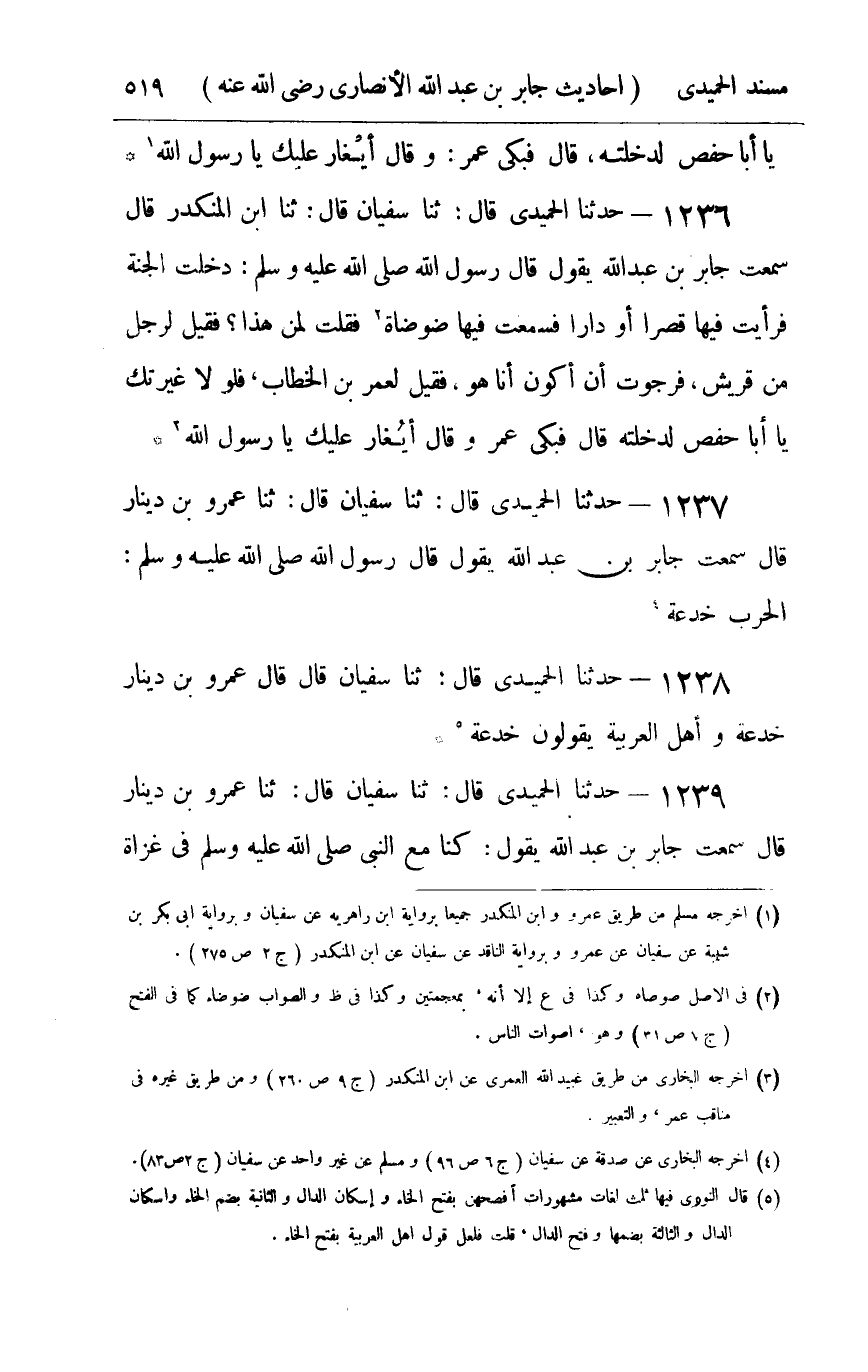 مسند الحميدى ( احاديث جابر بن عبد الله الأنصارى رضى الله عنه ) ٥١٩
يا أبا حفص لدخلته، قال فبكى عمر: و قال أيُغار عليك يا رسول الله١ *
١٢٣٦ — حدثنا الحميدى قال: ثنا سفيان قال: ثنا ابن المنكدر قال
سمعت جابر بن عبدالله يقول قال رسول الله صلى الله عليه و سلم: دخلت الجنة
فرأيت فيها قصرا أو دارا فسمعت فيها ضوضاة٢ فقلت لمن هذا؟ فقيل لرجل
من قريش، فرجوت أن أكون أنا هو، فقيل لعمر بن الخطاب، فلو لا غيرتك
يا أبا حفص لدخلته قال فبكى عمر و قال أيُغار عليك يا رسول الله٣ *
١٢٣٧ — حدثنا الحميدى قال: ثنا سفيان قال: ثنا عمرو بن دينار
قال سمعت جابر بن عبد الله يقول قال رسول الله صلى الله عليه و سلم:
الحرب خدعة٤
١٢٣٨ — حدثنا الحميدى قال: ثنا سفيان قال قال عمرو بن دينار
خدعة و أهل العربية يقولون خدعة٥ *
١٢٣٩ — حدثنا الحميدى قال: ثنا سفيان قال: ثنا عمرو بن دينار
قال سمعت جابر بن عبد الله يقول: كنا مع النبى صلى الله عليه وسلم فى غزاة
(١) اخرجه مسلم من طريق عمرو و ابن المنكدر جميعا برواية ابن راهريه عن سفيان و برواية ابى بكر بن
شيبة عن سفيان عن عمرو و برواية الناقد عن سفيان عن ابن المنكدر ( ج ٢ ص ٢٧٥ ) .
(٢) فى الاصل صوصاه وكذا فى ع إلا أنه، بمعجمتين وكذا فى ظ و الصواب ضوضاء كما فى الفتح
( ج ١ ص ٣١ ) و هو، اصوات الناس .
(٣) اخرجه البخارى من طريق عبيد الله العمرى عن ابن المنكدر ( ج ٩ ص ٢٦٠ ) و من طريق غيره فى
مناقب عمر، و التعبير .
(٤) اخرجه البخارى عن صدقة عن سفيان ( ج ٦ ص ٩٦ ) و مسلم عن غير واحد عن سفيان ( ج ٢ ص ٨٣).
(٥) قال النووى فيها ثلث لغات مشهورات أفصحهن بفتح الخاء و إسكان الدال و الثانية بضم الخاء واسكان
الدال و الثالثة بضمها و فتح الدال، قلت فلعل قول اهل العربية بفتح الخاء .